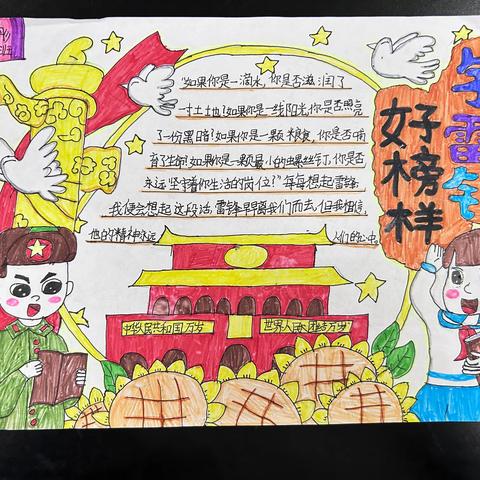 学雷锋
好榜样
"如果你是一滴水,你是否滋润了
一寸土地!如果你是一线阳光,你是否照亮
了一份黑暗?如果你是一颗粮食,你是否哺
育了生命!如果你是一颗最小的螺丝钉,你是否
永远坚守着你生活的岗位?"每每想起雷锋,
我便会想起这段话,雷锋早早离我们而去,但我相信,
他的精神永远
人们的心中。
中华人民共和国万岁
世界人民大团结万岁